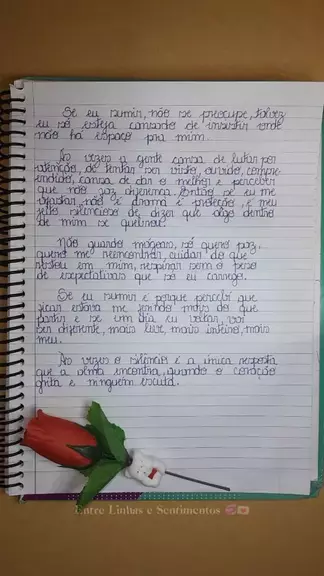 Se eu sumir, não se preocupe, talvez
eu só esteja cansado de insistir onde
não há espaço pra mim...
Às vezes a gente cansa de lutar por
atenção, de tentar ser visto, ouvido, compre-
endido, cansa de dar o melhor e perceber
que não faz diferença. Então se eu me
afastar, não é drama é proteção, é meu
jeito silencioso de dizer que algo dentro
de mim se quebrou.
Não guardo mágoas, só quero paz,
quero me reencontrar, cuidar do que
restou em mim, respirar sem o peso
de expectativas que só eu carrego.
Se eu sumir é porque percebi que
ficar estava me ferindo mais do que
partir e se um dia eu voltar, vai
ser diferente, mais leve, mais inteiro, mais
meu.
Às vezes o silêncio é a única resposta
que a alma encontra, quando o coração
grita e ninguém escuta.
Entre Linhas e Sentimentos